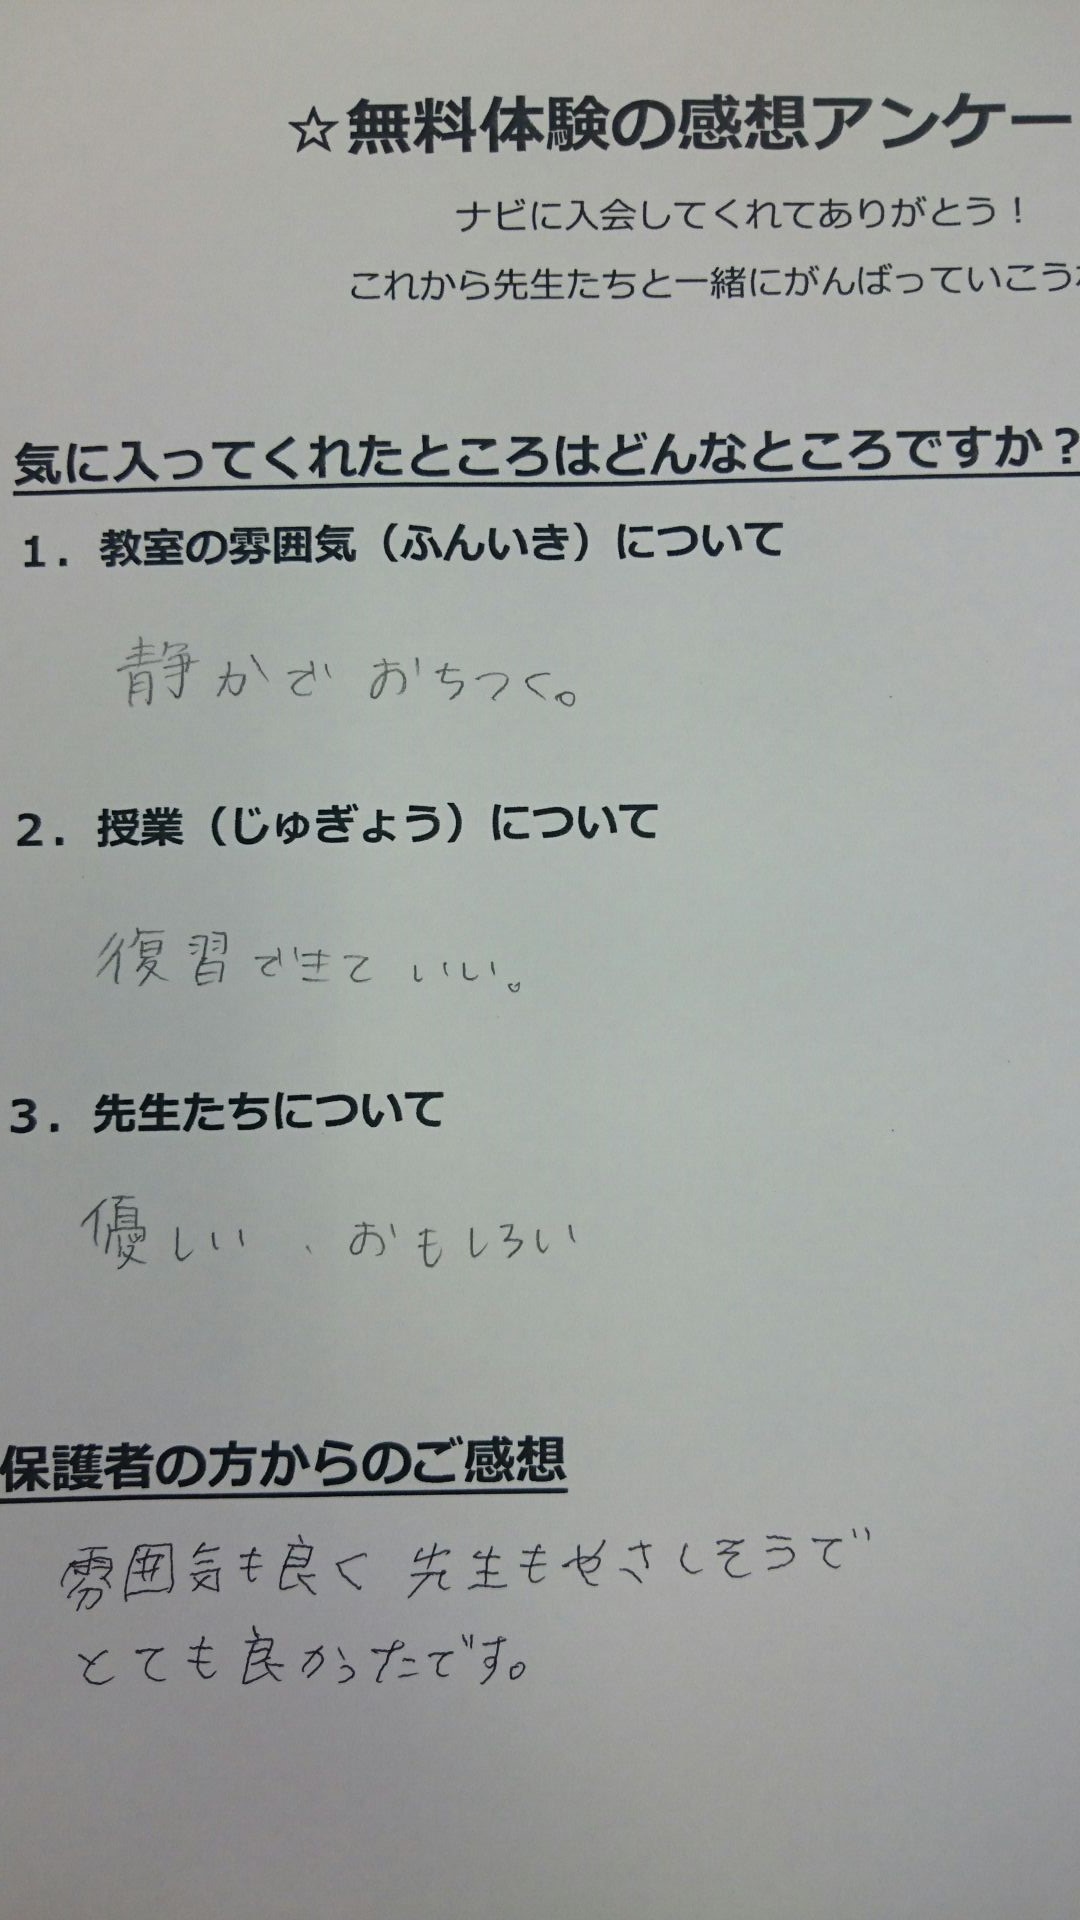 ☆無料体験の感想アンケー
ナビに入会してくれてありがとう！
これから先生たちと一緒にがんばっていこう
気に入ってくれたところはどんなところですか？
１．教室の雰囲気（ふんいき）について
静かで おちつく。
２．授業（じゅぎょう）について
復習できて いい。
３．先生たちについて
優しい 、おもしろい
保護者の方からのご感想
雰囲気も良く 先生もやさしそうで
とても良かったです。